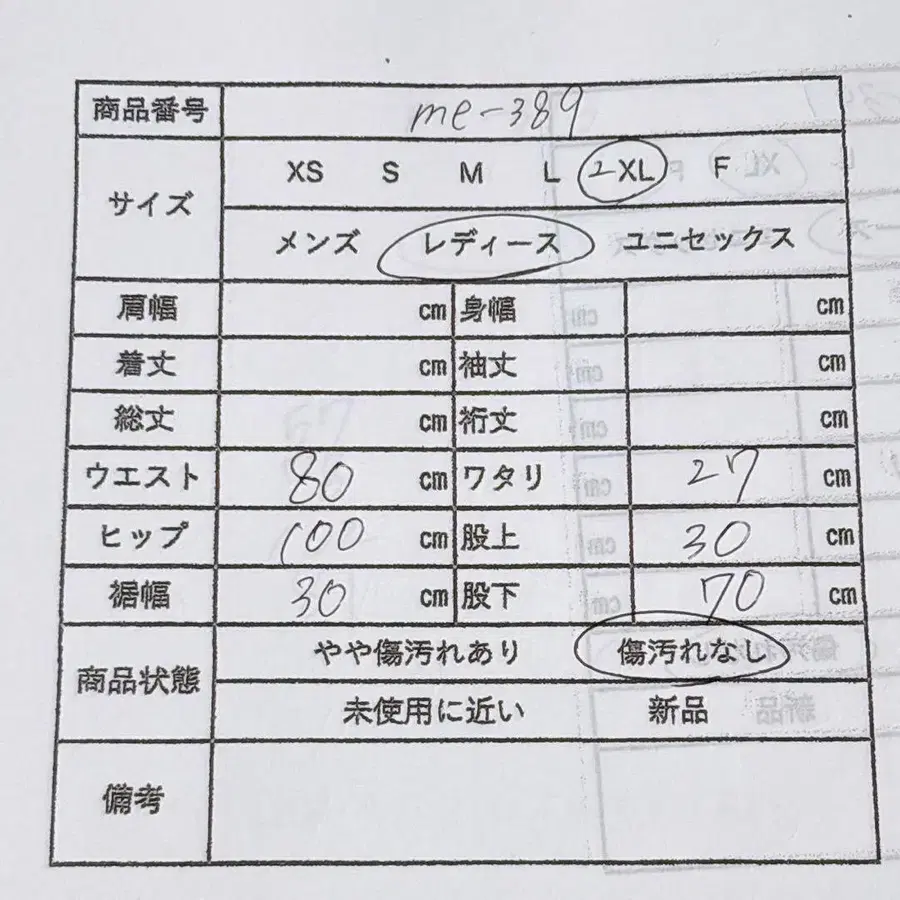 商品番号 me-389
サイズ XS S M L 2XL F
メンズ レディース ユニセックス
肩幅 cm 身幅 cm
着丈 cm 袖丈 cm
総丈 cm 裄丈 cm
ウエスト 80 cm ワタリ 27 cm
ヒップ 100 cm 股上 30 cm
裾幅 30 cm 股下 70 cm
商品状態 やや傷汚れあり 傷汚れなし
未使用に近い 新品
備考